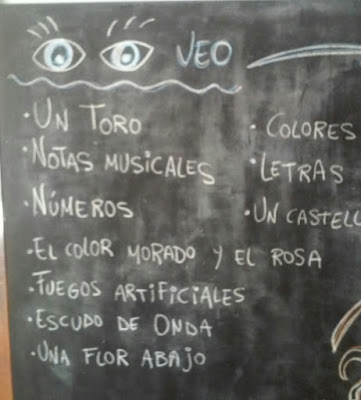 VEO
· UN TORO
· NOTAS MUSICALES
· NÚMEROS
· EL COLOR MORADO Y EL ROSA
· FUEGOS ARTIFICIALES
· ESCUDO DE ONDA
· UNA FLOR ABAJO
· COLORES
· LETRAS
· UN CASTELL